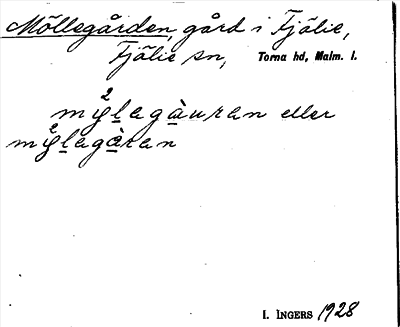 Möllegården, gård i Fjälie,
Fjälie sn, Torna hd, Malm. l.
my²lagàuran eller
my²lagàran
I. INGERS 1928